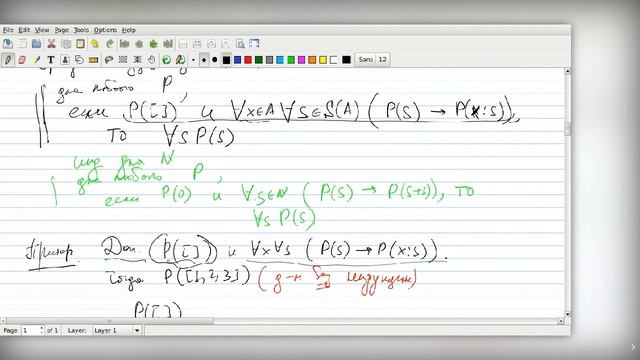 File Edit View Page Tools Options Help
Sans 12
для любого P,
если P([]) и ∀x∈A ∀s∈S(A) (P(s) → P(x:s)),
то ∀s P(s)
инд для N
для любого P,
если P(0) и ∀s∈N (P(s) → P(s+1)), то
∀s P(s)
Пример. Доп. P([]) и ∀x∀s (P(s) → P(x:s)).
тогда P([1,2,3]) (д-м без индукции)
P([])
Page 1 of 1 Layer: Layer 1